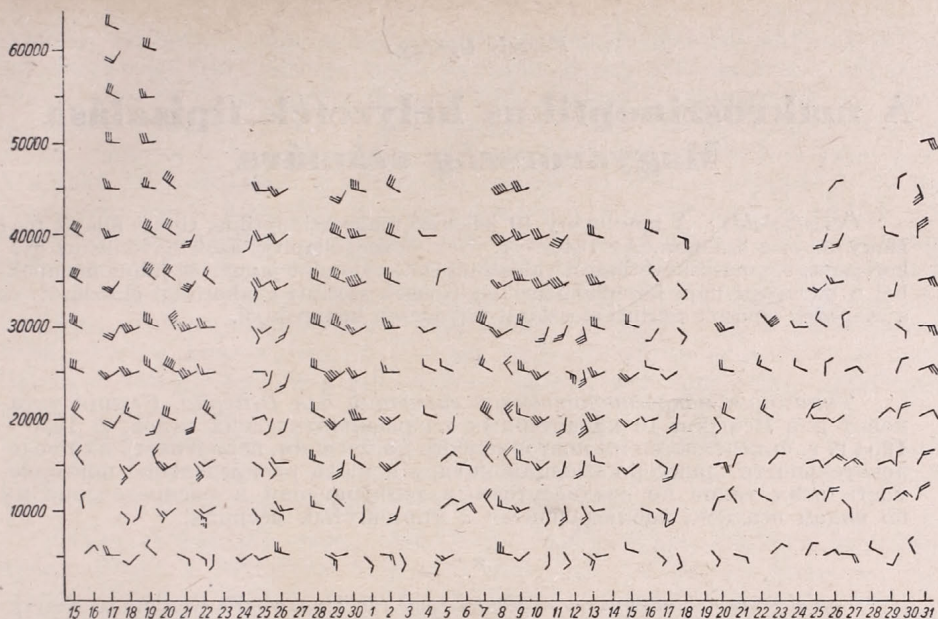 60000
50000
40000
30000
20000
10000
15 16 17 18 19 20 21 22 23 24 25 26 27 28 29 30 1 2 3 4 5 6 7 8 9 10 11 12 13 14 15 16 17 18 19 20 21 22 23 24 25 26 27 28 29 30 31